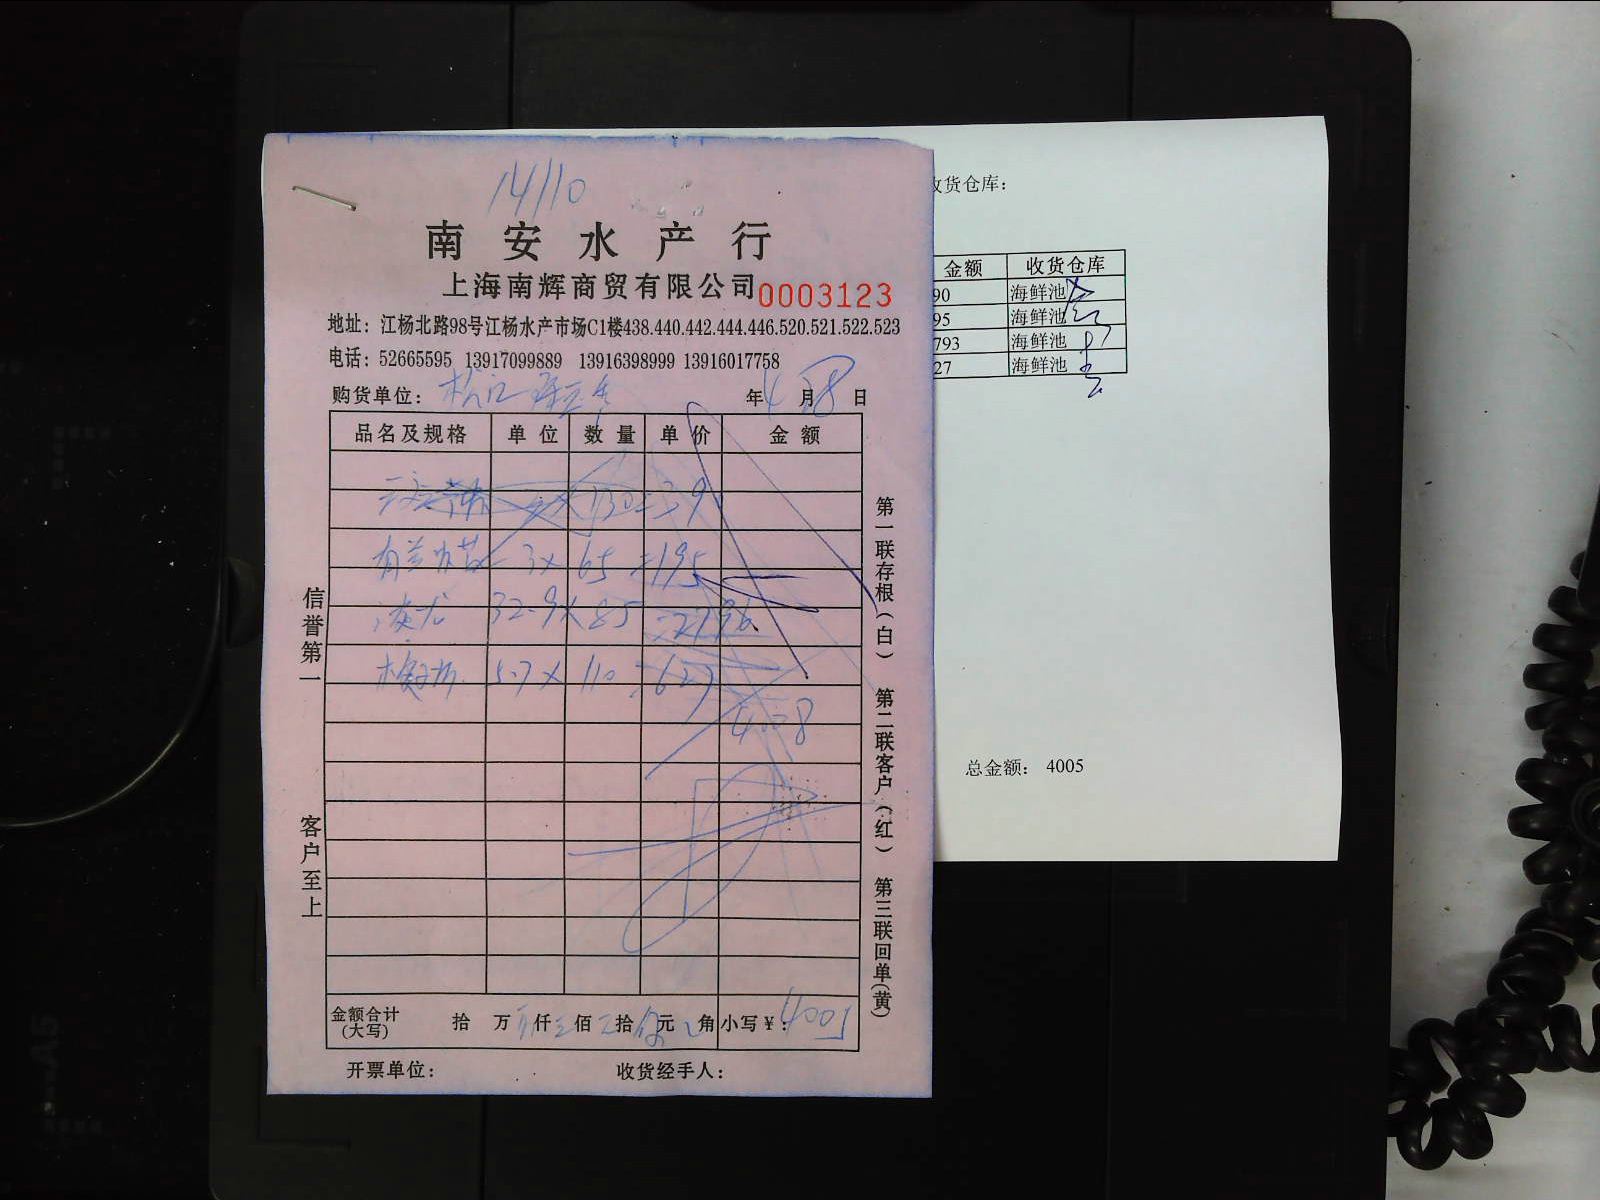 14/10
南安水产行
上海南辉商贸有限公司 0003123
地址：江杨北路98号江杨水产市场C1楼438.440.442.444.446.520.521.522.523
电话：52665595 13917099889 13916398999 13916017758
购货单位： 年 4 月 8 日
品名及规格 单位 数量 单价 金额
130 = 39
3 × 65 = 195
32.9 × 85 =
5.7 × 110 = 627
金额合计(大写) 拾 万 仟 佰 拾 元 角 小写￥： 4005
开票单位： 收货经手人：
信誉第一
客户至上
第一联存根(白) 第二联客户(红) 第三联回单(黄)
收货仓库：
金额 收货仓库
90 海鲜池
95 海鲜池
793 海鲜池
27 海鲜池
总金额： 4005